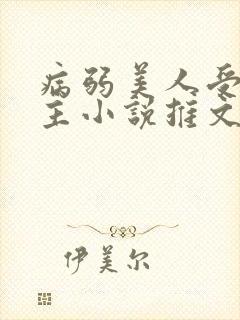 病弱美人受
主小说推文
伊美尔